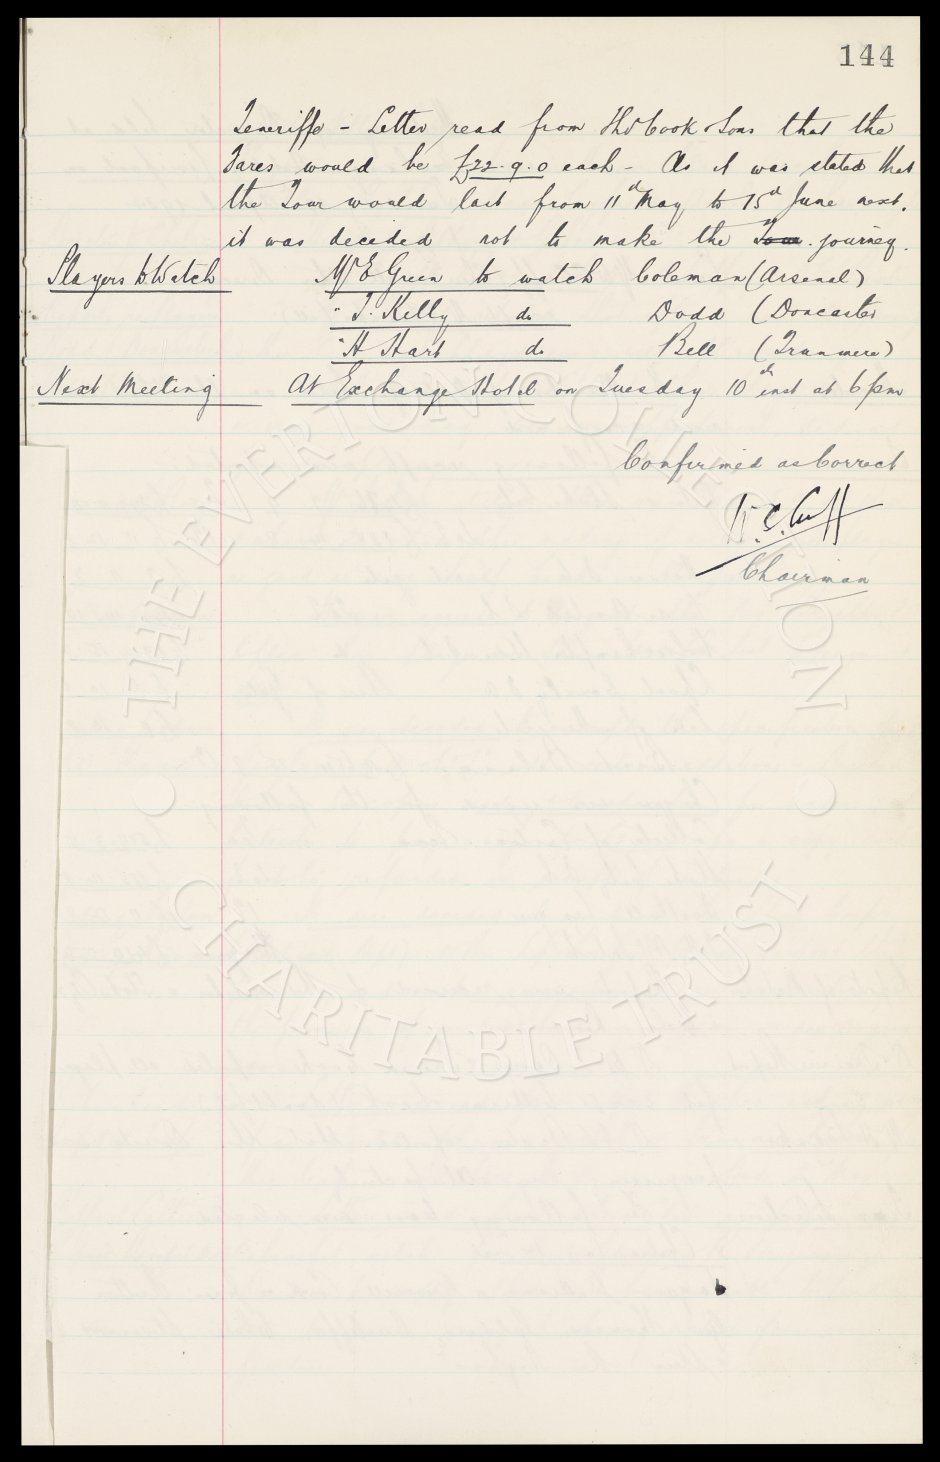 144
Teneriffe - Letter read from Thos Cook & Sons that the
Fares would be £22.9.0 each - As it was stated that
the Tour would last from 11th May to 15th June next.
it was decided not to make the Tour. journey.
Players to Watch Mr E Green to watch Coleman (Arsenal)
" T. Kelly do Dodd (Doncaster
" H Hart do Bell (Tranmere)
Next Meeting At Exchange Hotel on Tuesday 10th inst at 6pm
Confirmed as Correct
W.C. Cuff
Chairman
THE EVERTON COLLECTION
CHARITABLE TRUST